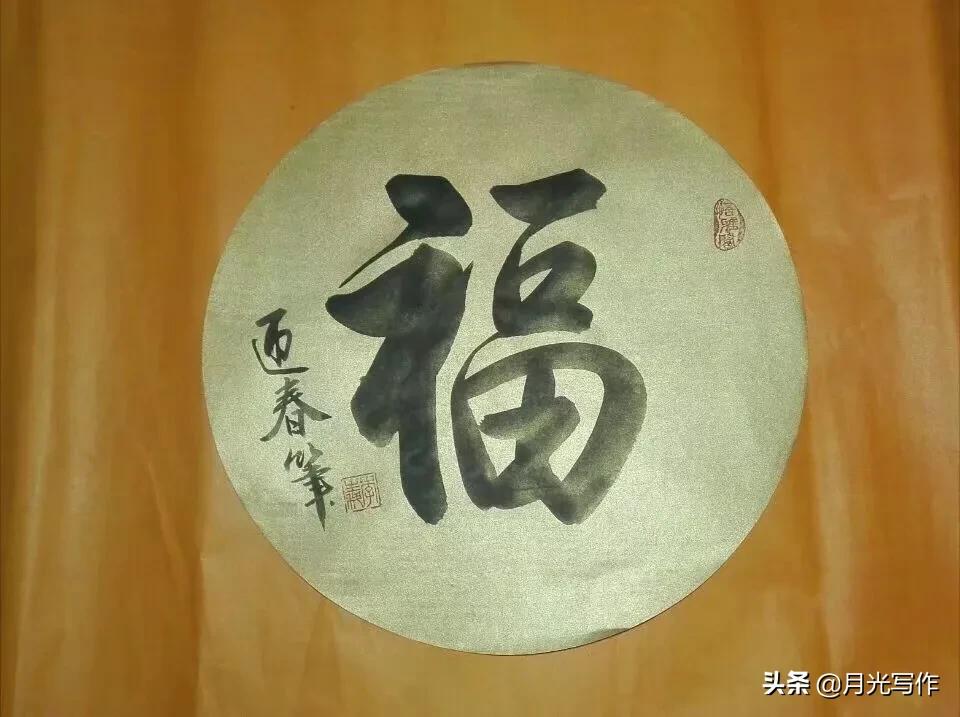 福
迎春筆
头条 @月光写作